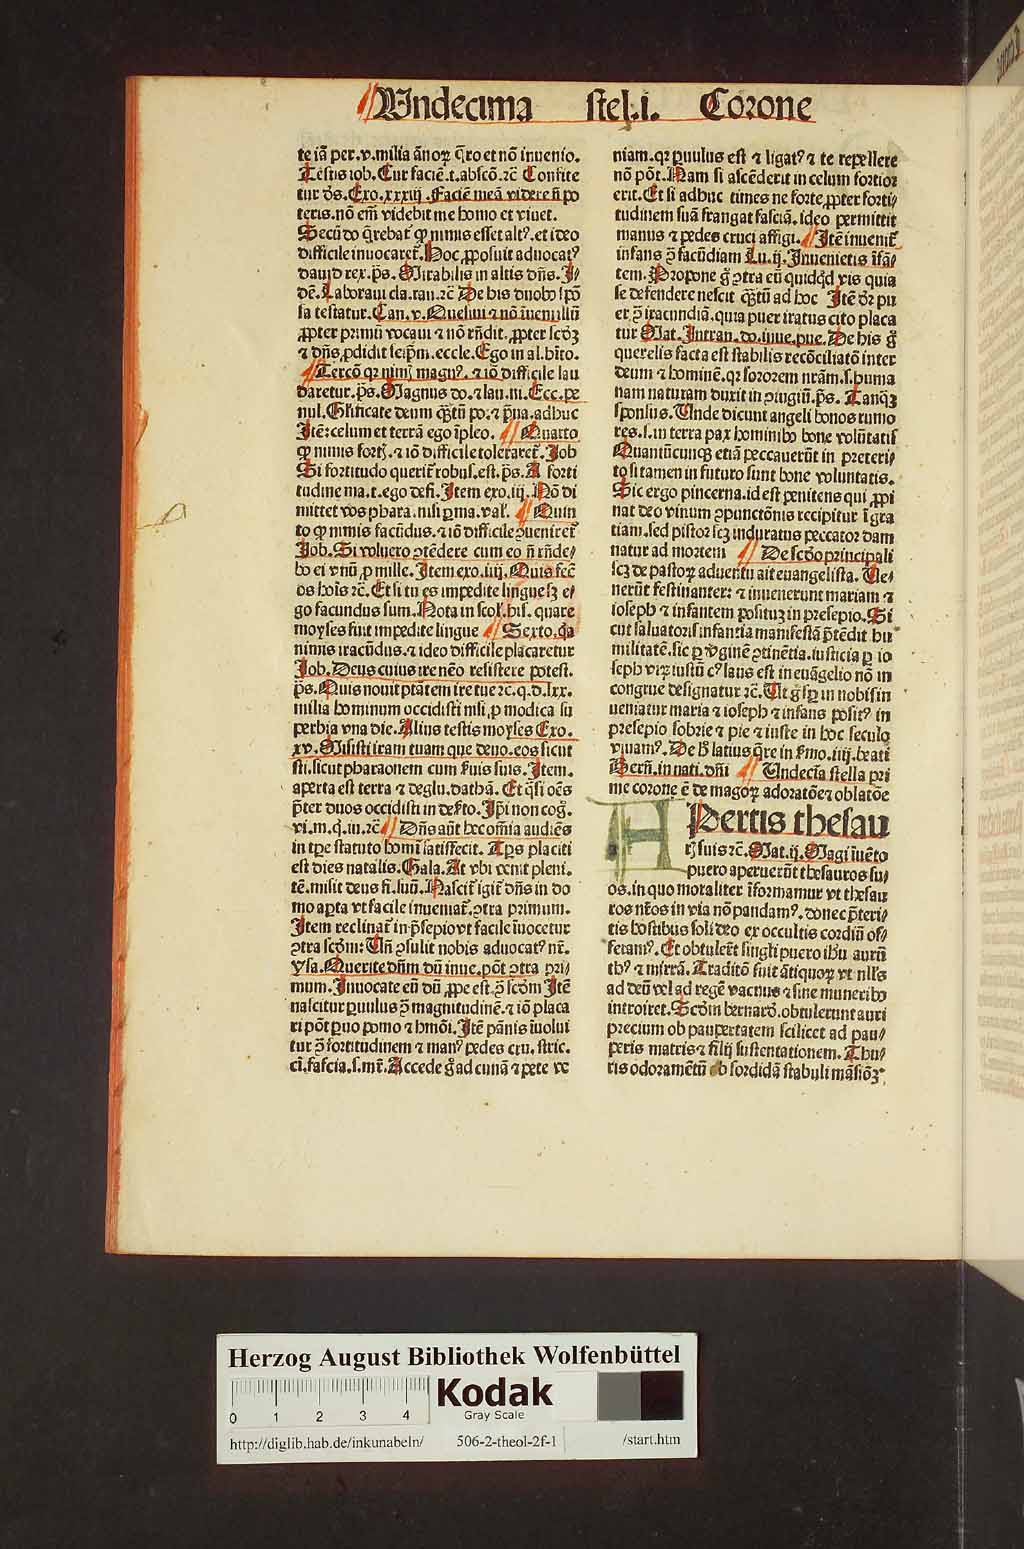 Undecima stel.i. Corone
te iā per.v.milia ānoꝝ q̄ro et nō inuenio.
Testis iob. Cur faciē.t.absco.ꝛc̄ Confite
tur d̄s. Exo.xxxiij. Faciē meā videre n̄ po
teris.nō em̄ videbit me homo et viuet.
Secūdo q̄rebat᷑ qꝫ nimis esset altꝰ.et ideo
difficile inuocaret᷑. Hoc ꝓposuit aduocatꝰ
dauid rex.p̄s. Mirabilis in altis dn̄s. J-
dē. Laboraui cla.rau.ꝛc̄ De his duobꝰ spō
sa testatur. Can.v. Quesiui ⁊ nō inueni illū
ꝓpter primū vocaui ⁊ nō rn̄dit. ꝓpter scd̄ꝫ
⁊ dn̄s ꝓdidit seip̄m. eccle. Ego in al.hīto.
Terco qꝛ nimꝭ magnꝰ.⁊ iō difficile lau
daretur.p̄s. Magnus do.⁊ lau.ni. Ecc.pe
nul. Glificate deum q̄ꝫtū po.⁊ p̄na.adhuc
Jtē: celum et terrā ego īpleo. Quarto
qꝫ nimis fortꝭ.⁊ iō difficile toleraret᷑. Job
Si fortitudo querit᷑ robus.est.p̄s. A forti
tudine ma.t.ego defi. Jtem exo.iij. Nō di
mittet vos phara.nisi ꝑ ma.val. Quin
to qꝫ nimis facūdus.⁊ iō difficile ꝯueniret᷑
Job. Si voluero ꝯtēdere cum eo n̄ rn̄de-
bo ei vnū ꝓ mille. Jtem exo.iiij. Quis fec̄
os hoīs ꝛc̄. Et si tu es impedite lingue sꝫ e-
go facundus sum. Nota in scol.his. quare
moyses fuit impedite lingue Sexto. q̄a
nimis iracūdus.⁊ ideo difficile placaretur
Job. Deus cuius ire nēo resistere potest.
p̄s. Quis nouit ptātem ire tue ꝛc.q.d.lxx.
milia hominum occidisti nisi ꝓ modica su
perbia vna die. Alius testis moyses Exo.
xv. Misisti iram tuam que deuo.eos sicut
sti.sicut pharaonem cum ẜuis suis. Jtem.
aperta est terra ⁊ deglu.dathā. Et q̄si oēs
p̄ter duos occidisti in deẜto. Jpī non cog̃.
vi.m.q.in.ꝛc̄ Dn̄s aūt hec om̄ia audiēs
in tp̄e statuto homī satisfecit. Tp̄s placiti
est dies natalis. Gala. At vbi venit pleni.
tē.misit deus fi.suū. Nascit᷑ igit᷑ dn̄s in do
mo aꝑta vt facile inueniat᷑.ꝯtra primum.
Jtem reclinat᷑ in p̄sepio vt facile īuocetur
ꝯtra scd̄m: Un̄ ꝯsulit nobis aduocatꝰ nr̄.
Ysa. Querite dn̄m dū inue.pōt ꝯtra pri-
mum. Jnuocate eū dū ꝓpe est.ꝯ̄ scd̄m Jtē
nascitur ꝑuulus ꝯ̄ magnitudinē.⁊ iō placa
ri pōt ꝑuo pomo ⁊ hmōi. Jtē pānis īuolui
tur ꝯ̄ fortitudinem ⁊ manꝰ pedes cru. stric.
cī.fascia.s.mr̄. Accede g̊ ad cunā ⁊ pete ve
niam.qꝛ ꝑuulus est ⁊ ligatꝰ ⁊ te repellere
nō pōt. Nam si ascēderit in celum fortior
erit. Et si adhuc times ne forte ꝓpter forti-
tudinem suā frangat fasciā.ideo permittit
manus ⁊ pedes cruci affigi. Jtē inuenit᷑
infans ꝯ̄ facūdiam Lu.ij. Jnuenietis īfā-
tem. Propone g̊ ꝯtra eū quidqd vis quia
se defendere nescit q̄ꝫtū ad hoc Jtē dr̄ pu
er ꝯ̄ iracundiā.quia puer iratus cito placa
tur Mat. Jntran.do.inue.pue. De his g̊
querelis facta est stabilis recōciliatō inter
deum ⁊ hominē.qꝛ sororem nrām.s.huma
nam naturam duxit in ꝯiugiū.p̄s. Tanqꝫ
sponsus. Unde dicunt angeli bonos rumo
res.s.in terra pax hominibꝰ bone volūtatis
Quantūcunqꝫ etiā peccauerūt in preteri-
to si tamen in futuro sunt bone voluntatis.
Sic ergo pincerna.id est penitens qui ꝓpi
nat deo vinum ꝯpunctōnis recipitur ī gra
tiam.sed pistor scꝫ induratus peccator dam
natur ad mortem De scd̄o principali
scꝫ de pastoꝝ aduentu ait euangelista. Ve-
nerūt festinanter: ⁊ inuenerunt mariam ⁊
ioseph ⁊ infantem positum in presepio. Si
cut saluatoris infantia manifestā p̄tēdit hu
militatē.sic ꝑ v̄ginē ꝯtinētia.iusticia ꝑ io
seph viꝝ iustū cꝰ laus est in euāgelio nō in
congrue designatur ꝛc̄. Ut g̊ sꝑ in nobis in
ueniatur maria ⁊ ioseph ⁊ infans positꝰ in
presepio sobrie ⁊ pie ⁊ iuste in hoc seculo
viuamꝰ. De hꝭ latius q̄re in ẜmo.iiij.beati
Bern̄.in nati.dn̄i Undecīa stella pri
me corone ē de magoꝝ adoratōe ⁊ oblatōe
APertis thesau
rꝭ suis ꝛc̄. Mat.ij. Magi īuēto
puero aperuerūt thesauros su-
os.in quo moraliter īformamur vt thesau
ros nr̄os in via nō pandamꝰ.donec p̄teri-
tis hostibus soli deo ex occultis cordiū of-
feramꝰ. Et obtulert̄ singli puero ihū aurū
thꝰ ⁊ mirrā. Traditō fuit ātiquoꝝ vt nllꝰs
ad deū vel ad regē vacuus ⁊ sine muneribꝰ
introiret. Scd̄m bernard̄.obtulerunt auri
precium ob paupertatem scilicet ad pau-
peris matris ⁊ filij sustentationem. Thu-
ris odoramētū ob sordidā stabuli māsiōꝫ.
Herzog August Bibliothek Wolfenbüttel
0 1 2 3 4
Kodak
Gray Scale
http://diglib.hab.de/inkunabeln/ 506-2-theol-2f-1 /start.htm